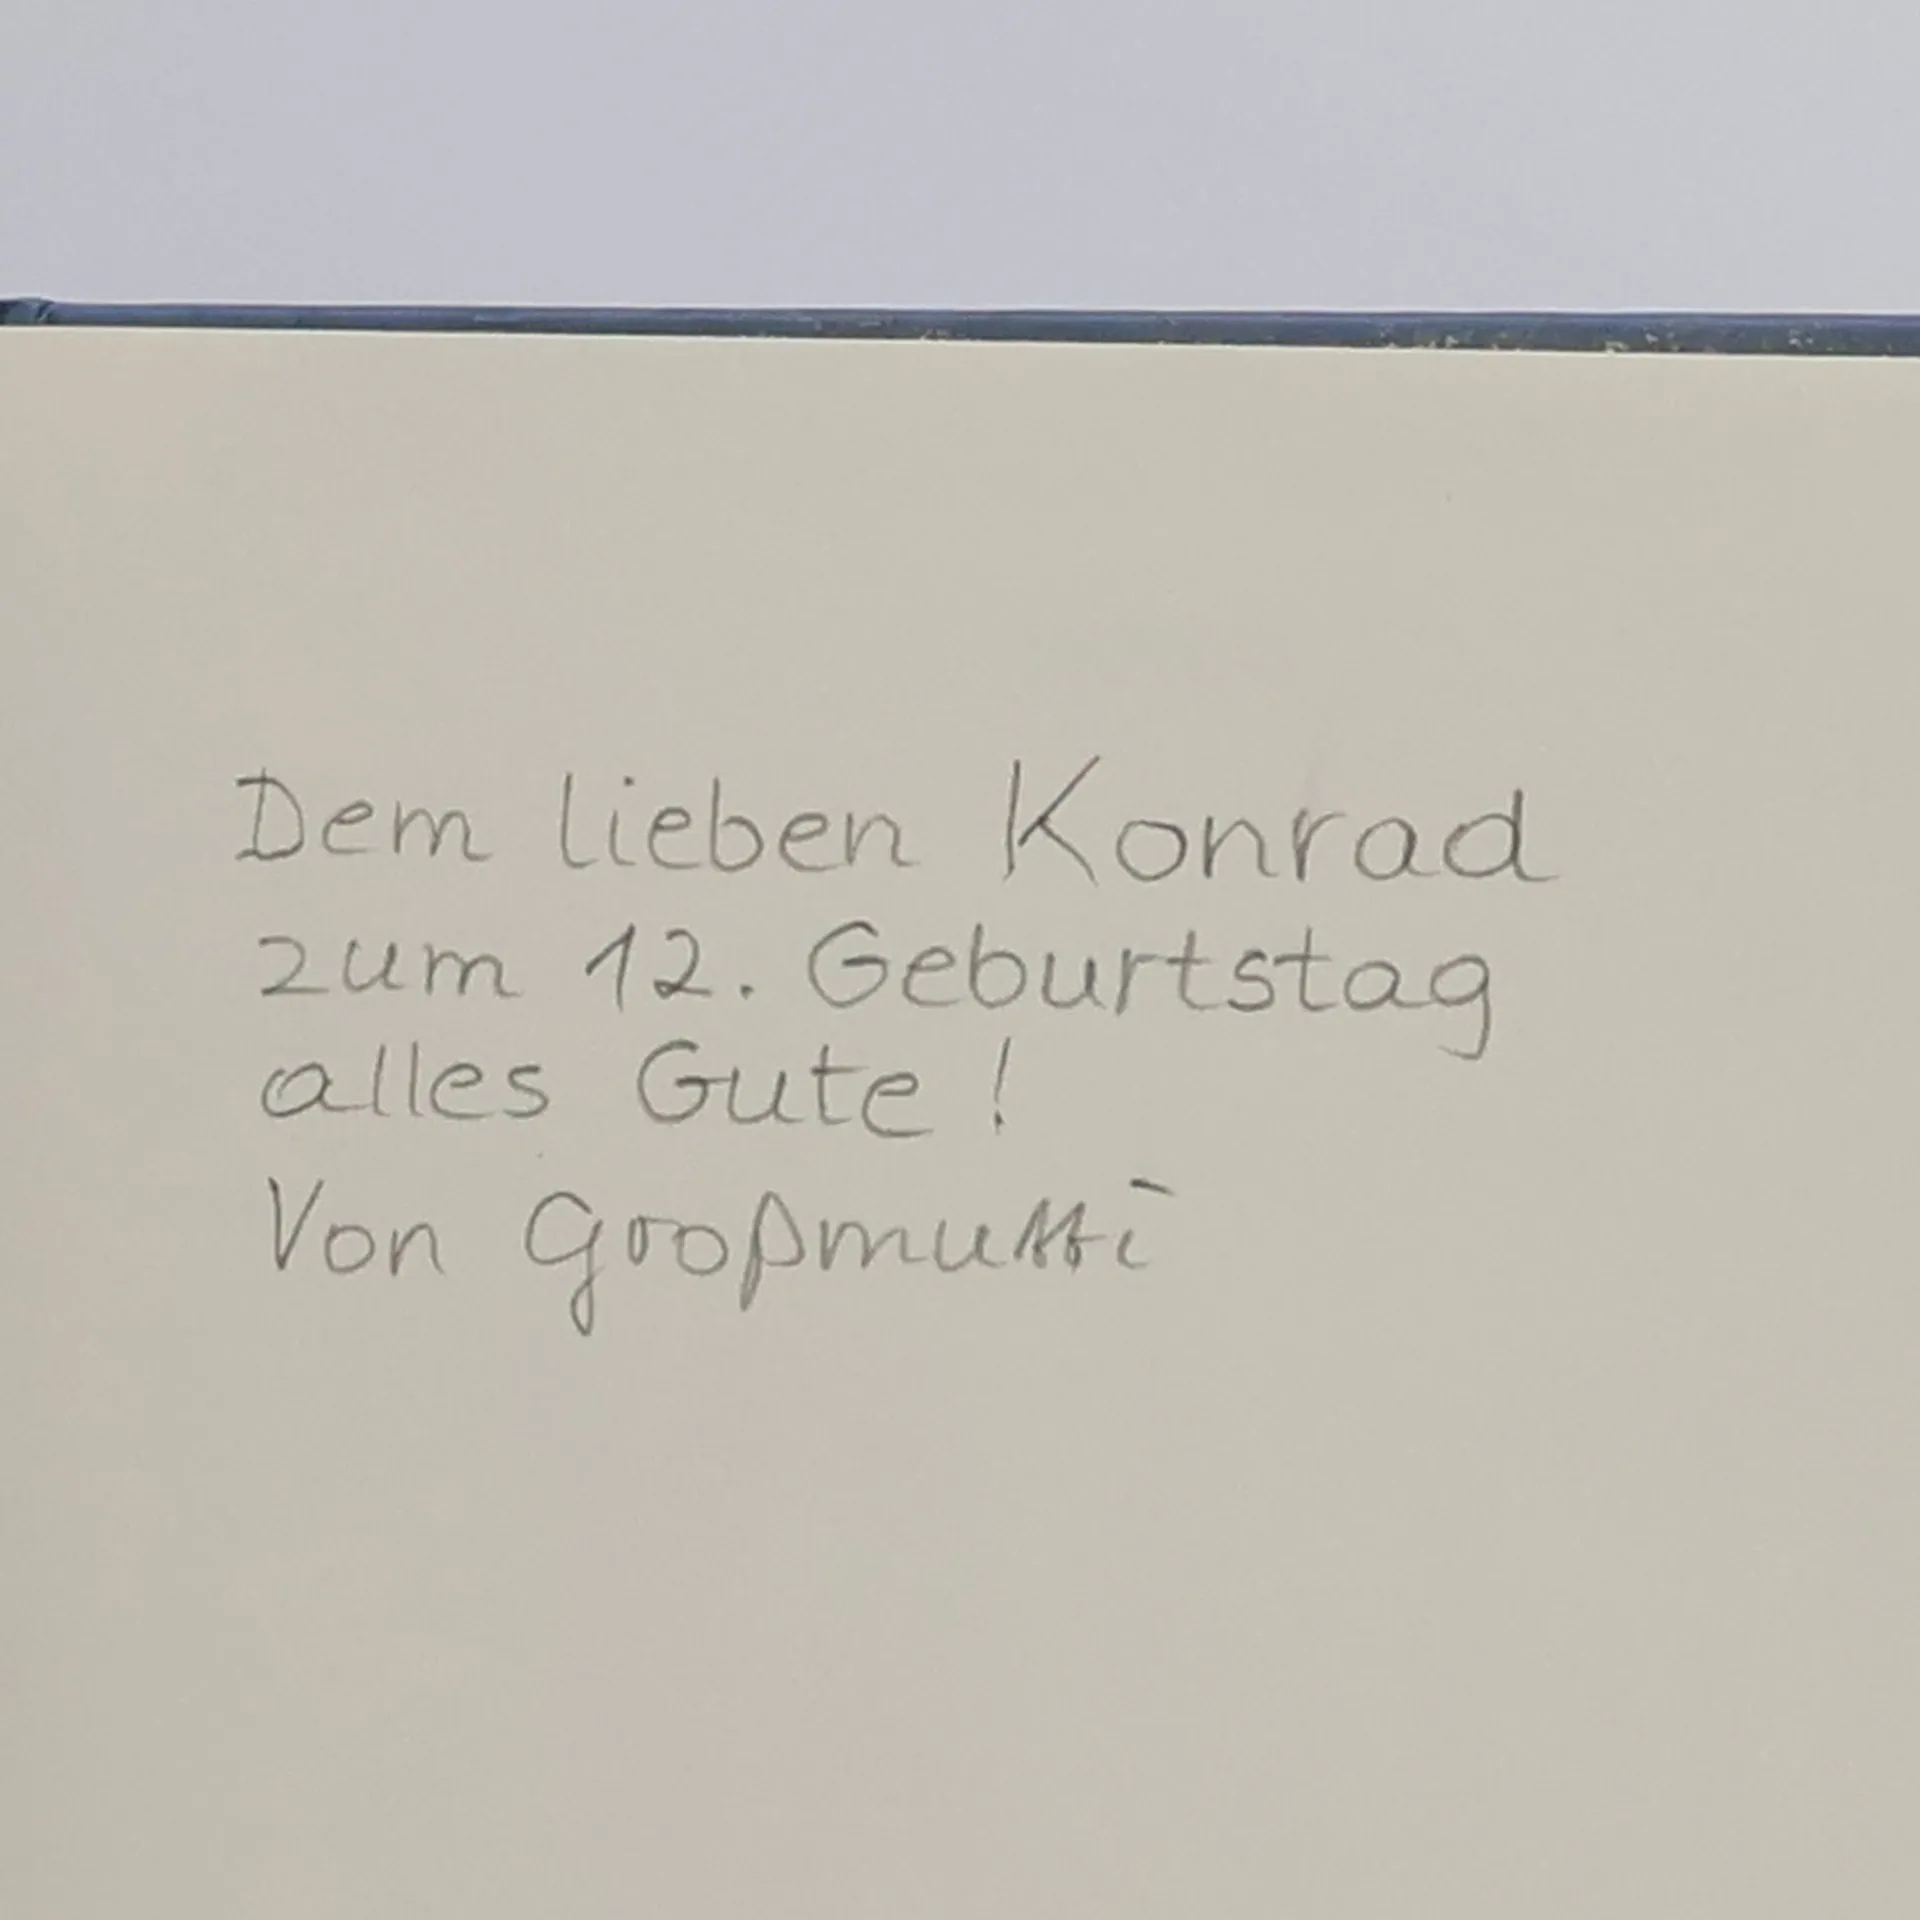 Dem lieben Konrad
zum 12. Geburtstag
alles Gute!
Von Großmutti